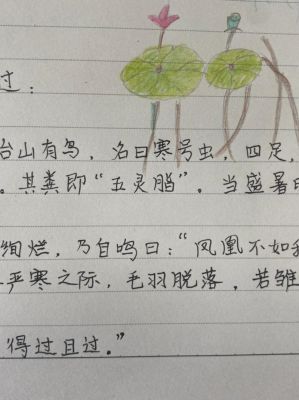 过：
台山有鸟，名曰寒号虫，四足，
。其粪即“五灵脂”。当盛暑时
绚烂，乃自鸣曰：“凤凰不如我
严寒之际，毛羽脱落，若雏
得过且过。”